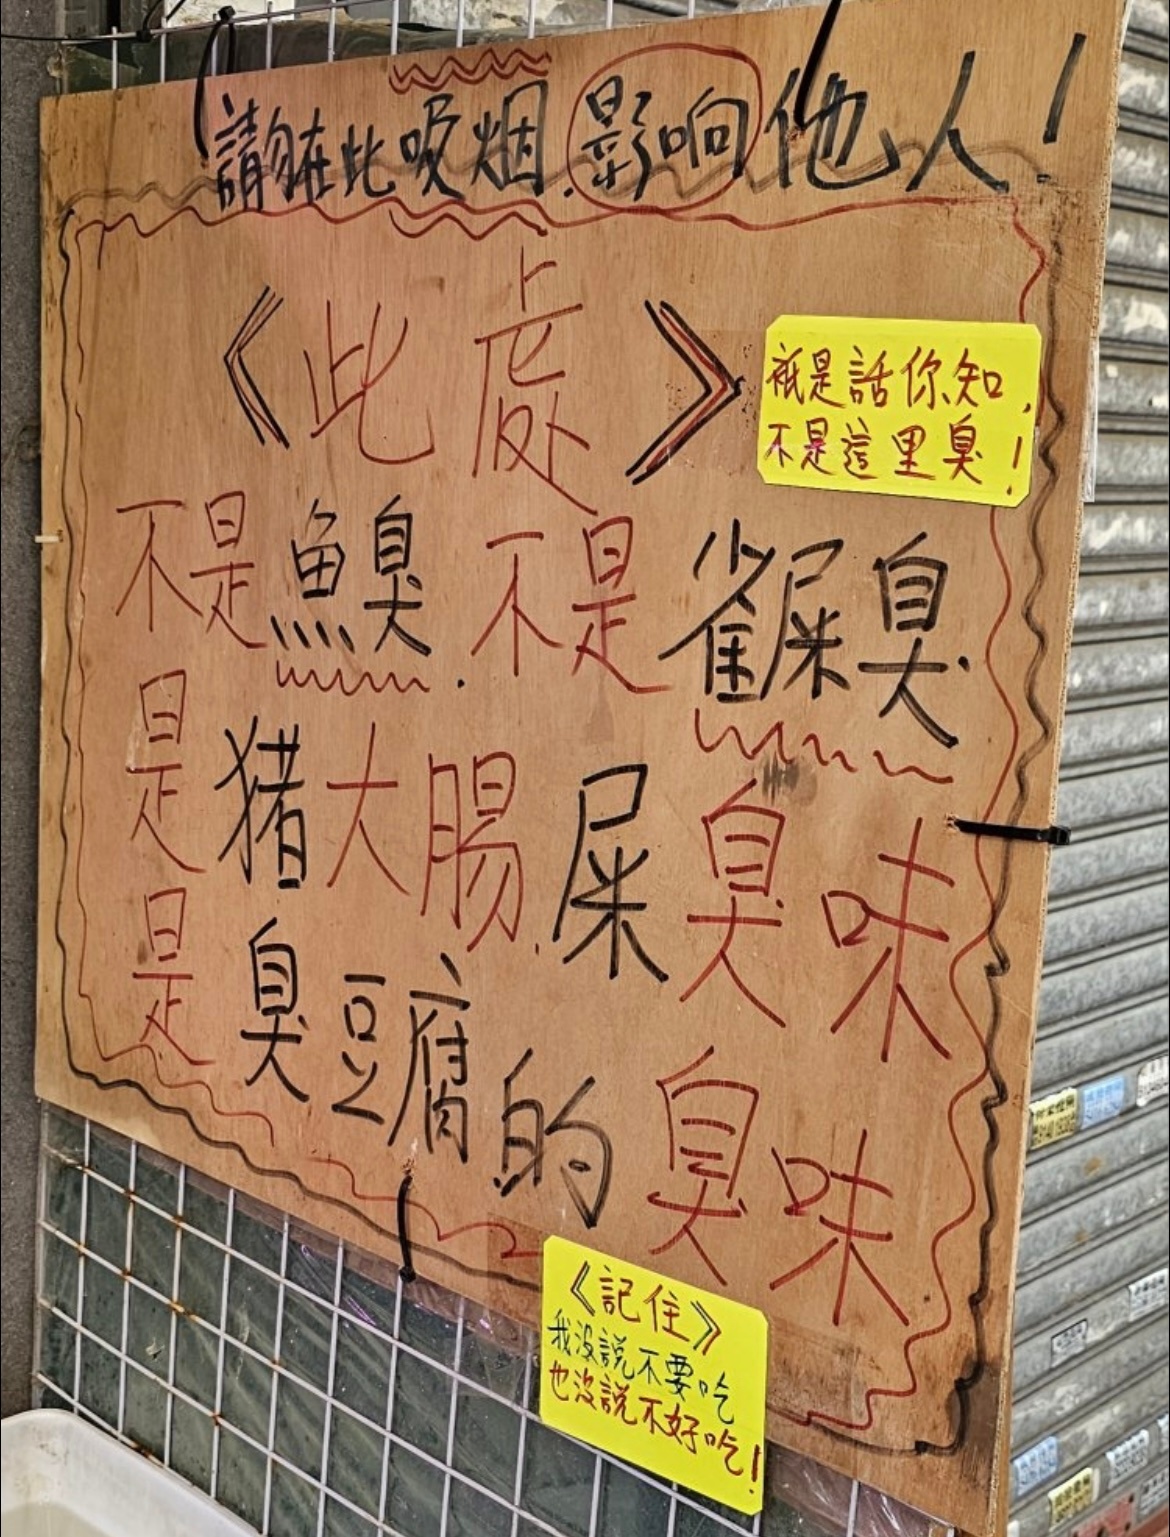 請勿在此吸烟.影响他人!
《此處》
祇是話你知,
不是這里臭!
不是魚臭.不是雀屎臭
是猪大腸.屎臭味
是臭豆腐的臭味
《記住》
我沒説不要吃
也沒説不好吃!